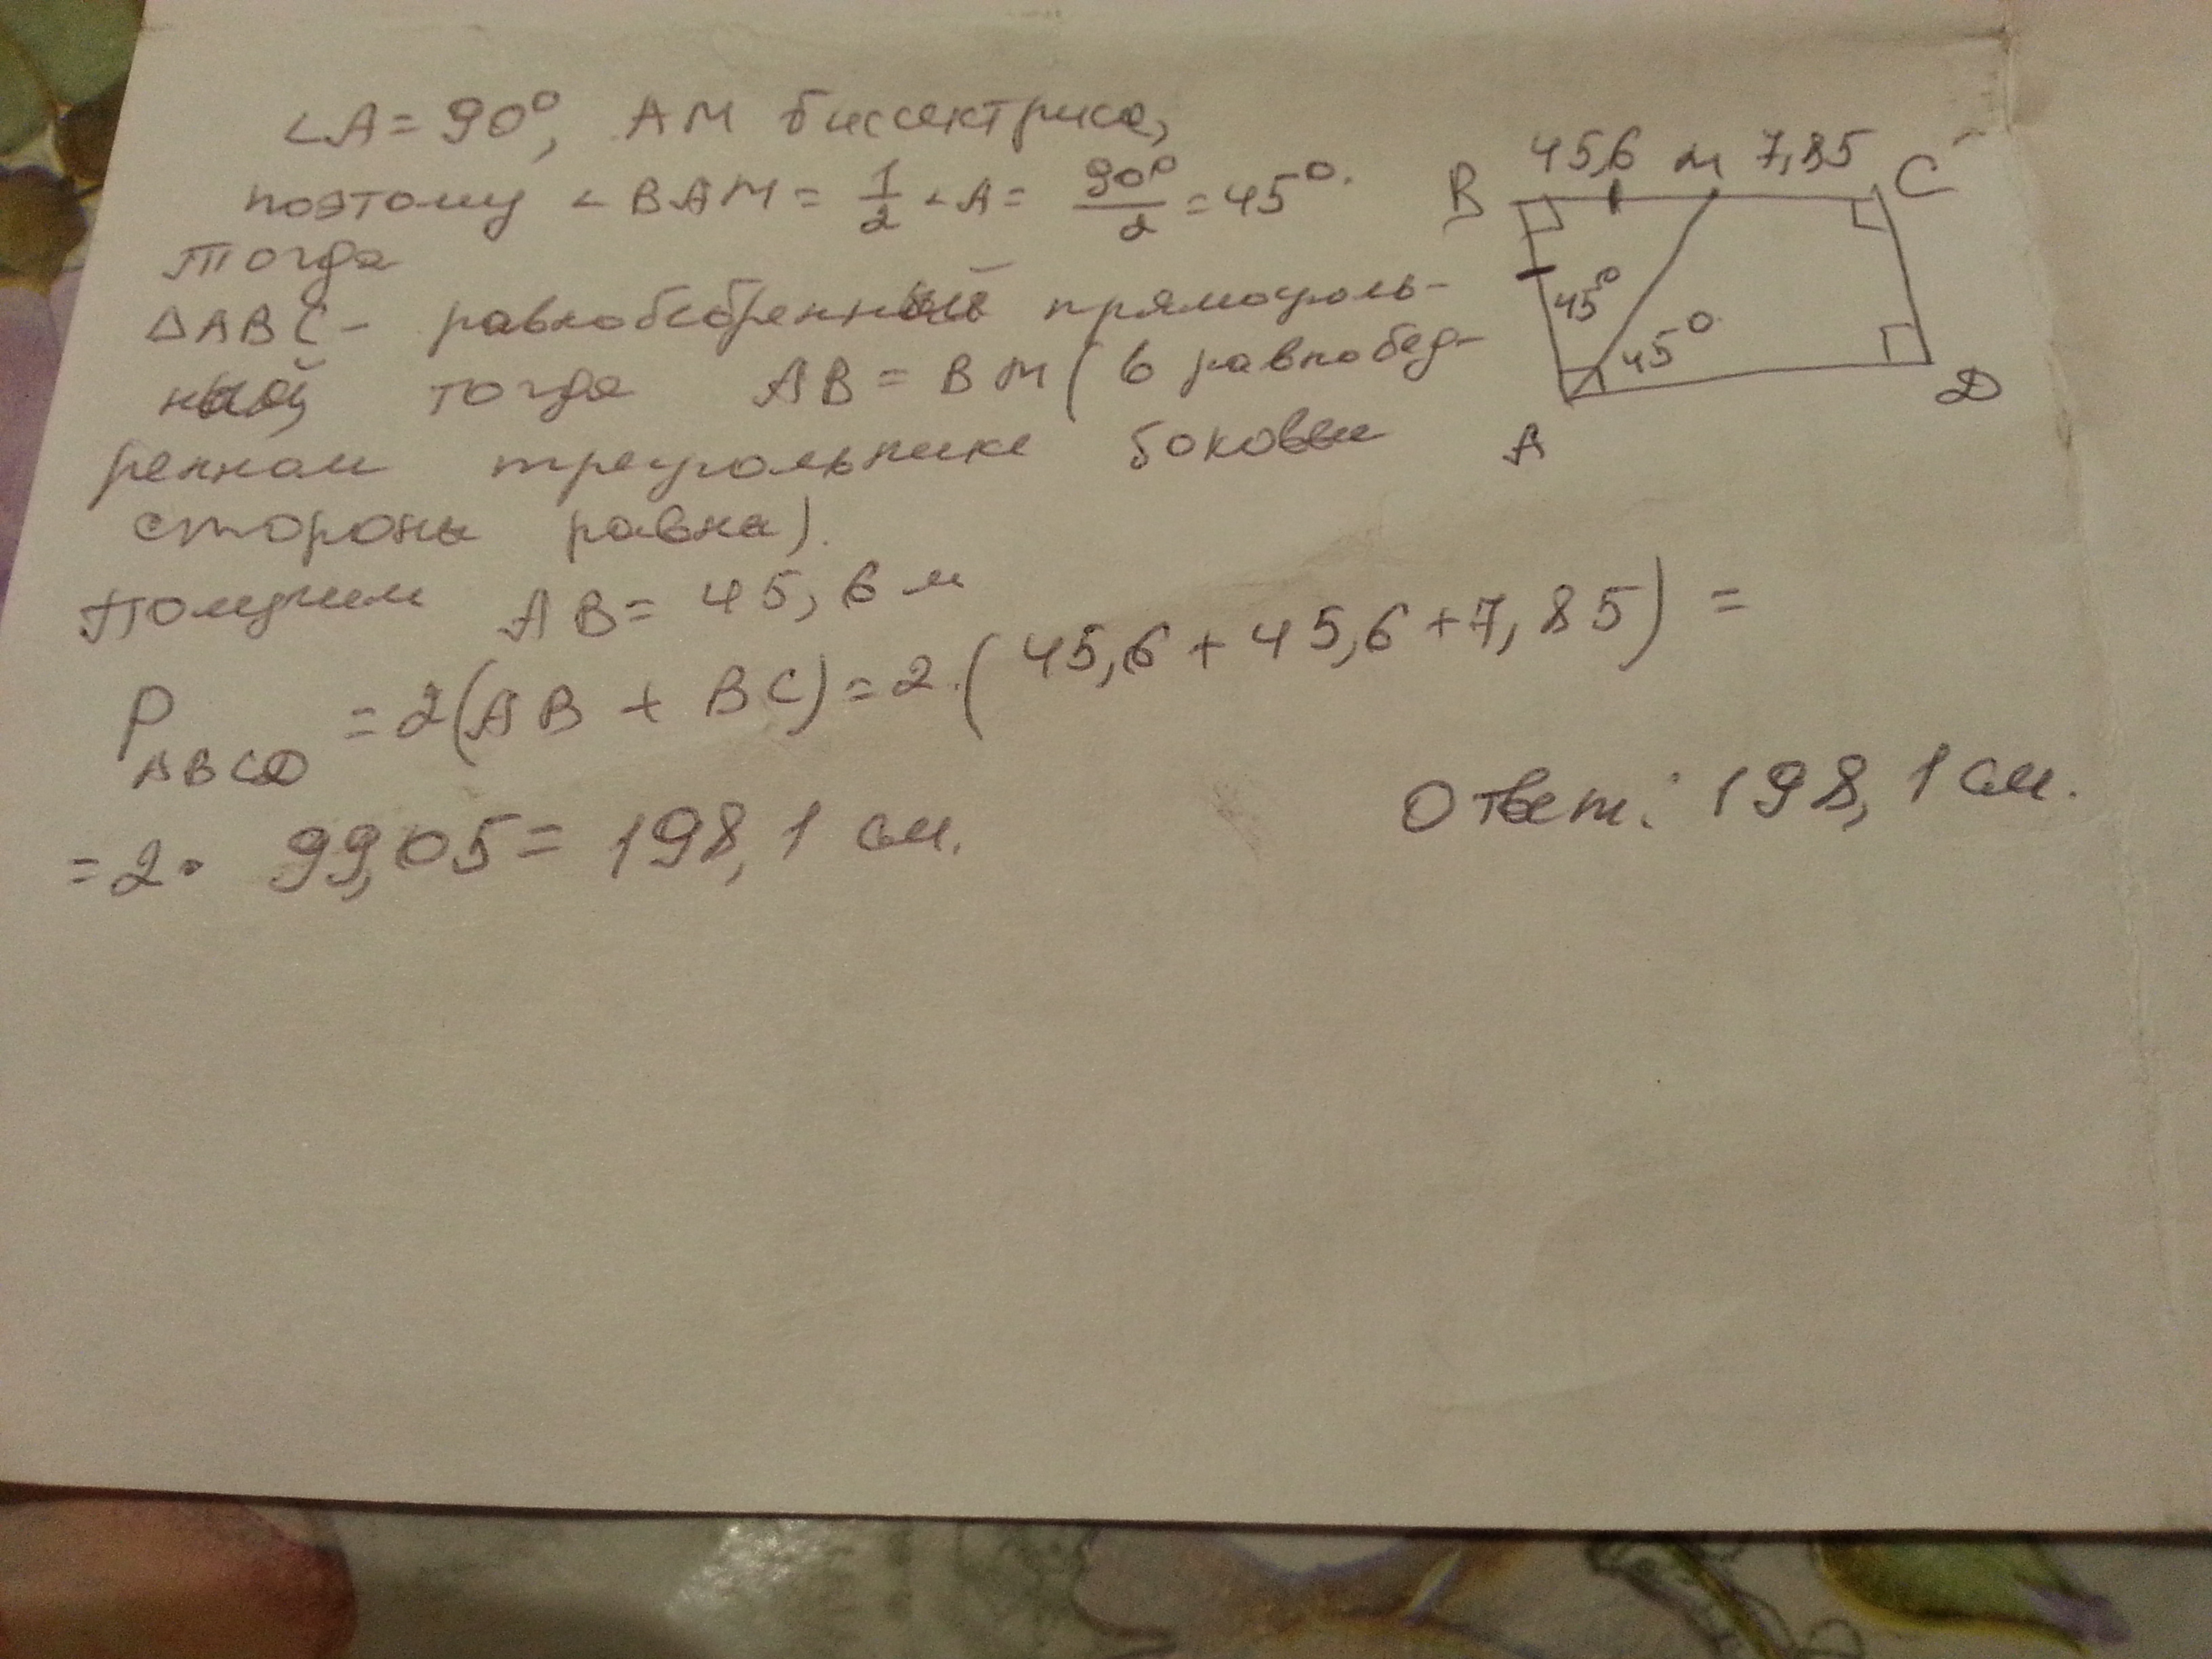 ∠A = 90°, AM биссектриса,
поэтому ∠BAM = 1/2 ∠A = 90°/2 = 45°.
тогда
ΔABC - равнобебренный прямоуголь-
ный, тогда AB = BM (в равнобед-
ренном треугольнике боковые
стороны равны).
Получим AB = 45,6 м
P ABCD = 2(AB + BC) = 2·(45,6 + 45,6 + 7,85) =
= 2· 99,05 = 198,1 см.
Ответ: 198,1 см.
B 45,6 M 7,85 C
45°
45°
A
D